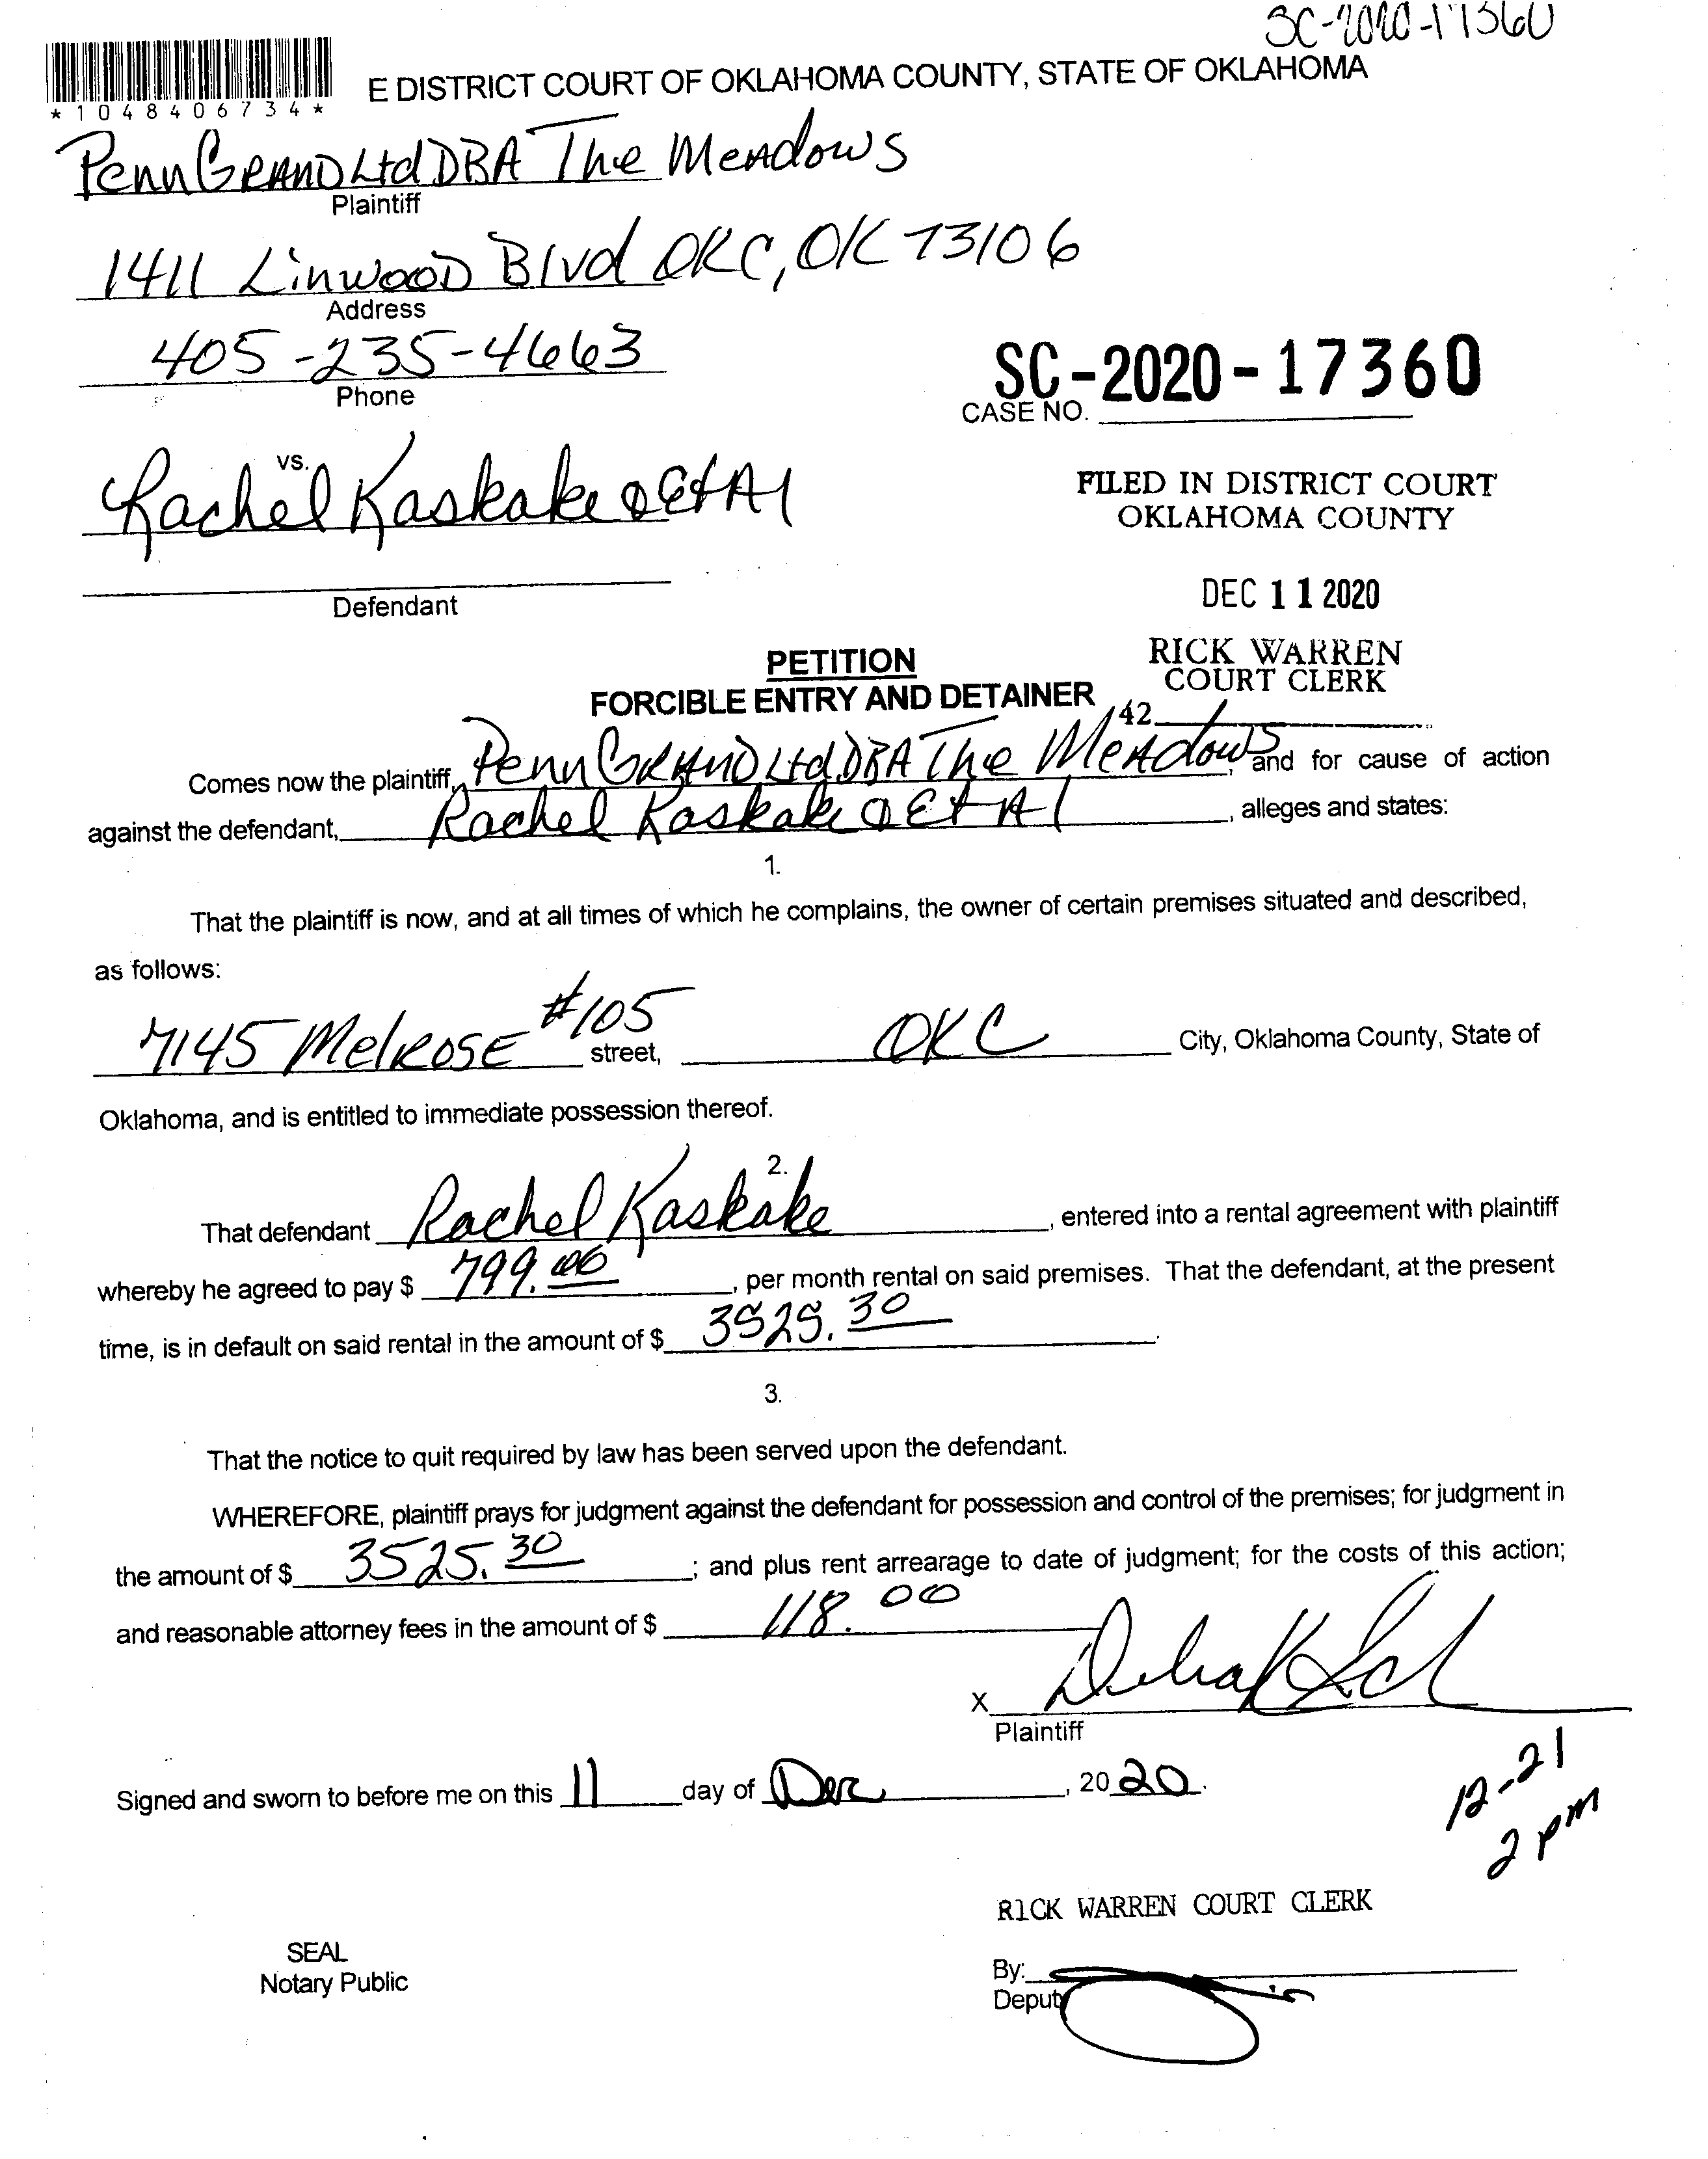 SC-2020-17360
*1048406734*
E DISTRICT COURT OF OKLAHOMA COUNTY, STATE OF OKLAHOMA
Penn Grand Ltd DBA The Meadows
Plaintiff
1411 Linwood Blvd OKC, OK 73106
Address
405-235-4663
Phone
SC-2020-17360
CASE NO.
vs.
Rachel Kaskake & Et Al
FILED IN DISTRICT COURT
OKLAHOMA COUNTY
Defendant
DEC 11 2020
PETITION
FORCIBLE ENTRY AND DETAINER
RICK WARREN
COURT CLERK
42
Comes now the plaintiff, Penn Grand Ltd DBA The Meadows, and for cause of action
against the defendant, Rachel Kaskake & Et Al, alleges and states:
1.
That the plaintiff is now, and at all times of which he complains, the owner of certain premises situated and described,
as follows:
7145 Melrose #105 street, OKC City, Oklahoma County, State of
Oklahoma, and is entitled to immediate possession thereof.
2.
That defendant Rachel Kaskake, entered into a rental agreement with plaintiff
whereby he agreed to pay $ 799.00, per month rental on said premises. That the defendant, at the present
time, is in default on said rental in the amount of $ 3525.30.
3.
That the notice to quit required by law has been served upon the defendant.
WHEREFORE, plaintiff prays for judgment against the defendant for possession and control of the premises; for judgment in
the amount of $ 3525.30; and plus rent arrearage to date of judgment; for the costs of this action;
and reasonable attorney fees in the amount of $ 118.00
X
Plaintiff
Signed and sworn to before me on this 11 day of Dec, 2020.
12-21
2 pm
RICK WARREN COURT CLERK
SEAL
Notary Public
By:
Deputy